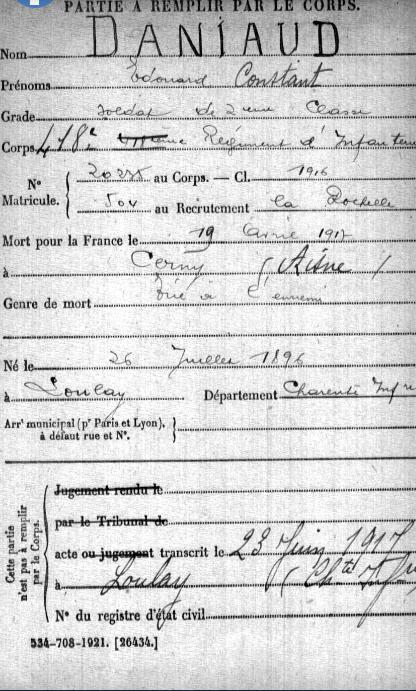 PARTIE À REMPLIR PAR LE CORPS.
Nom DANIAUD
Prénoms Édouard Constant
Grade soldat de 2eme Classe
Corps 418e Régiment d'Infanterie
N° Matricule. { au Corps. — Cl. 1916
504 au Recrutement la Rochelle
Mort pour la France le 19 avril 1917
à Cerny (Aisne)
Genre de mort tué à l'ennemi
Né le 26 Juillet 1896
à Loulay Département Charente Infre
Arrt municipal (pr Paris et Lyon),
à défaut rue et N°.
Cette partie n'est pas à remplir par le Corps.
Jugement rendu le
par le Tribunal de
acte ou jugement transcrit le 23 Juin 1917
à Loulay (Chte Infre
N° du registre d'état civil
534-708-1921. [26434.]